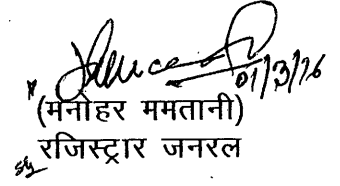 01/3/16
(मनोहर ममतानी)
रजिस्ट्रार जनरल